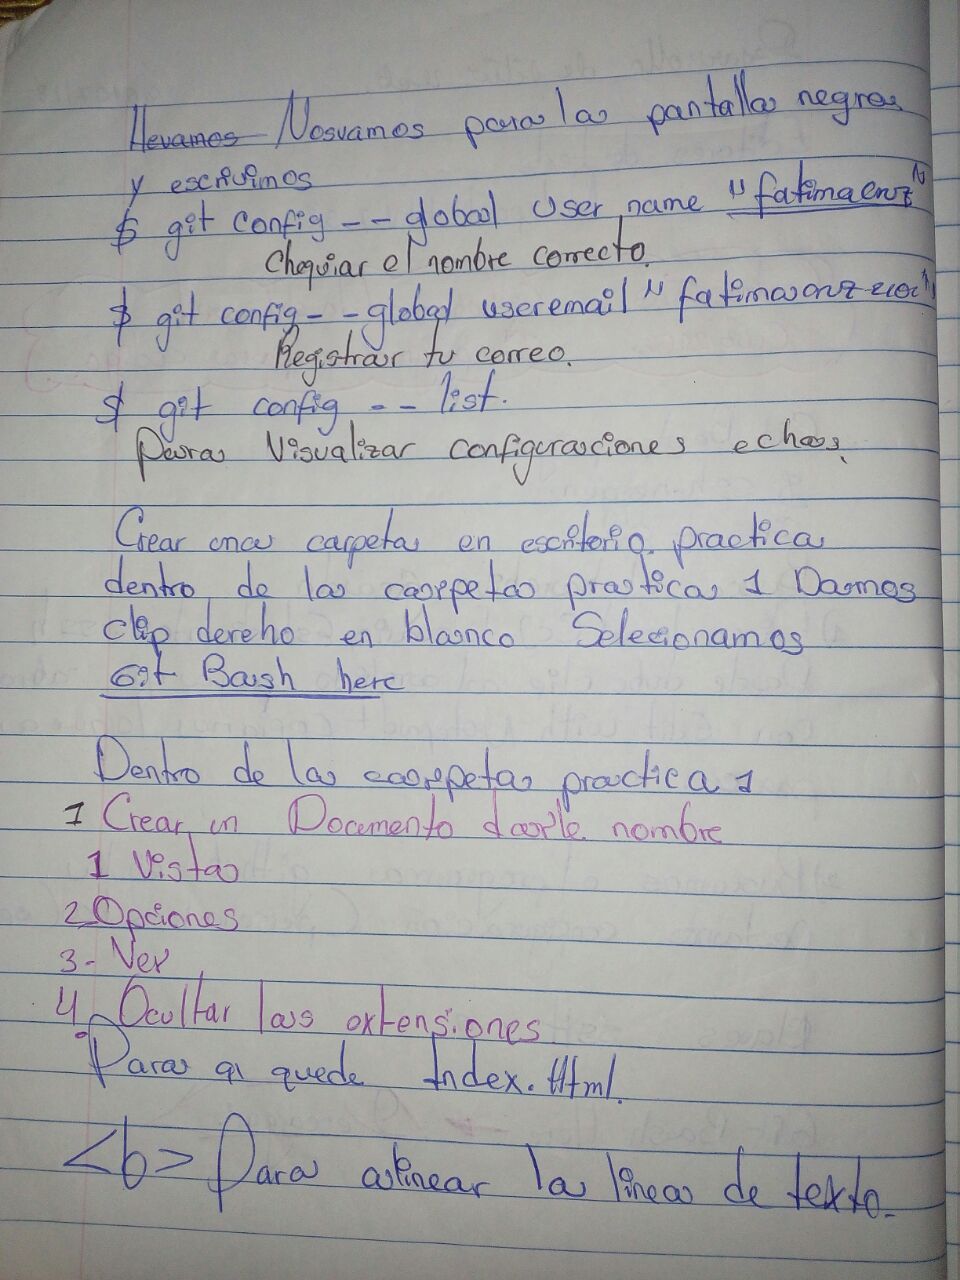 Hevamos Nosvamos para la pantalla negra
y escrivimos
$ git config -- global User name "fatimacruz"
Chequiar el nombre correcto.
$ git config -- global useremail "fatimacruz
Registrar tu correo.
$ git config -- list.
Para Visualizar configuraciones echas.
Crear una carpeta en escritorio practica
dentro de la carpeta practica 1 Damos
clip dereho en blanco Selecionamos
Git Bash here
Dentro de la carpeta practica 1
1 Crear un Documento darle nombre
1 Vista
2 Opciones
3- Ver
4. Ocultar las extensiones
Para q quede Index.Html.
<b> Para alinear la linea de texto.